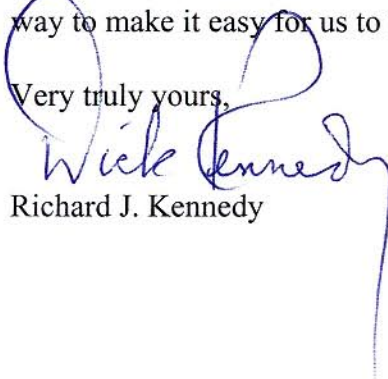 way to make it easy for us to
Very truly yours,
Dick Kennedy
Richard J. Kennedy